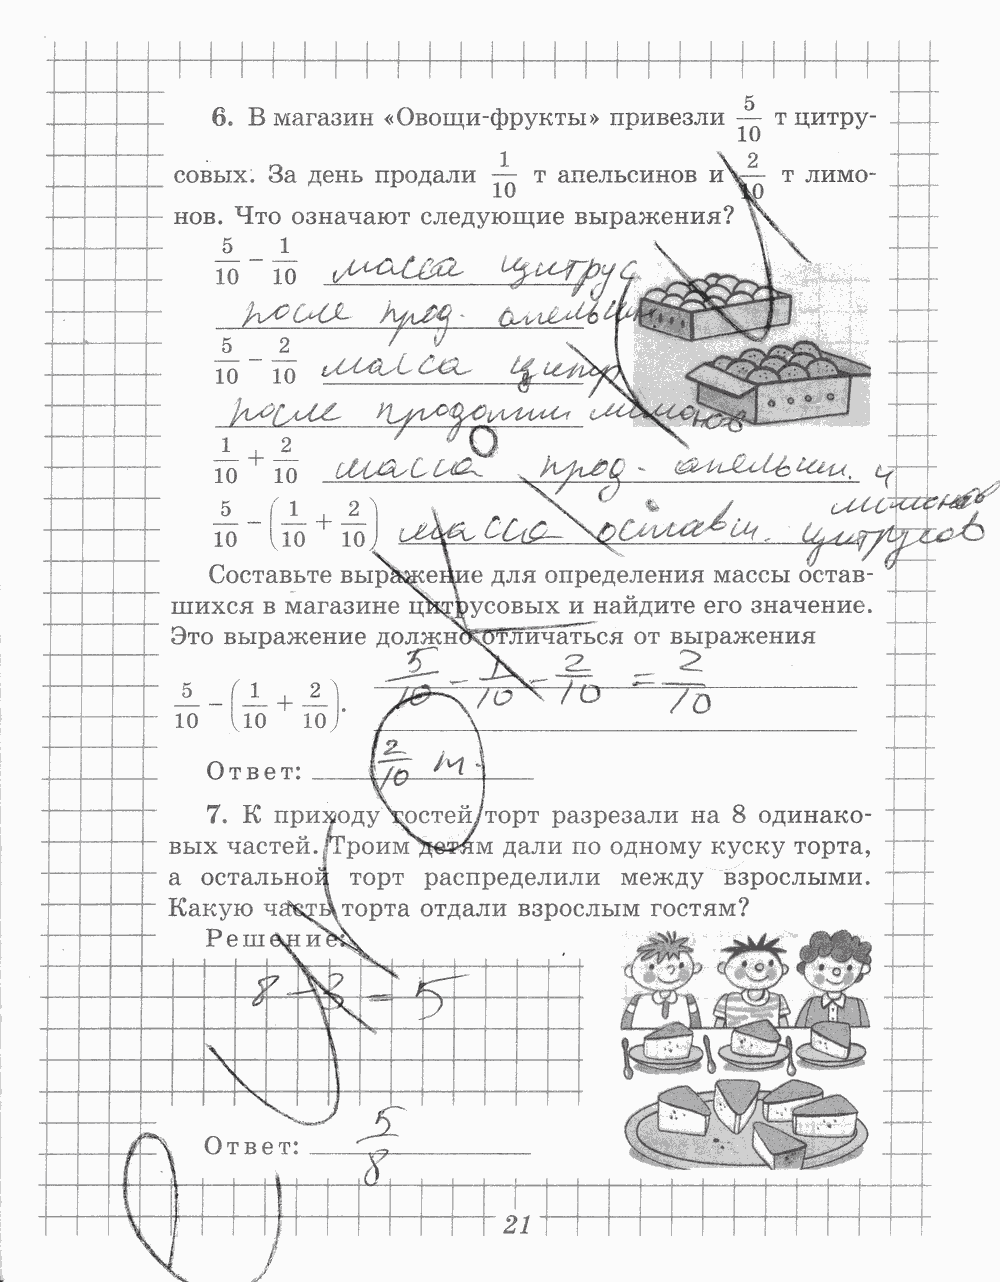 6. В магазин «Овощи-фрукты» привезли 5/10 т цитру-
совых. За день продали 1/10 т апельсинов и 2/10 т лимо-
нов. Что означают следующие выражения?
5/10 − 1/10 масса цитрус
после прод. апельсин
5/10 − 2/10 масса цитр
после продажи лимонов
1/10 + 2/10 масса прод. апельсин. и
лимонов
5/10 − (1/10 + 2/10) масса оставш. цитрусов
Составьте выражение для определения массы остав-
шихся в магазине цитрусовых и найдите его значение.
Это выражение должно отличаться от выражения
5/10 − (1/10 + 2/10). 5/10 − 1/10 − 2/10 = 2/10
Ответ: 2/10 т.
7. К приходу гостей торт разрезали на 8 одинако-
вых частей. Троим детям дали по одному куску торта,
а остальной торт распределили между взрослыми.
Какую часть торта отдали взрослым гостям?
Решение:
8 − 3 = 5
Ответ: 5/8
21